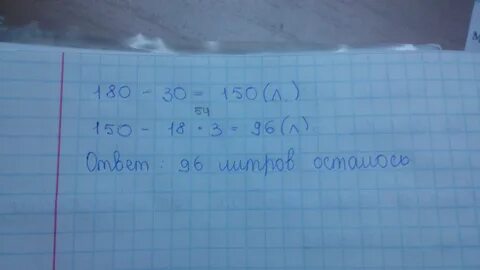 180 - 30 = 150 (л.)
54
150 - 18 · 3 = 96 (л)
Ответ : 96 литров осталось